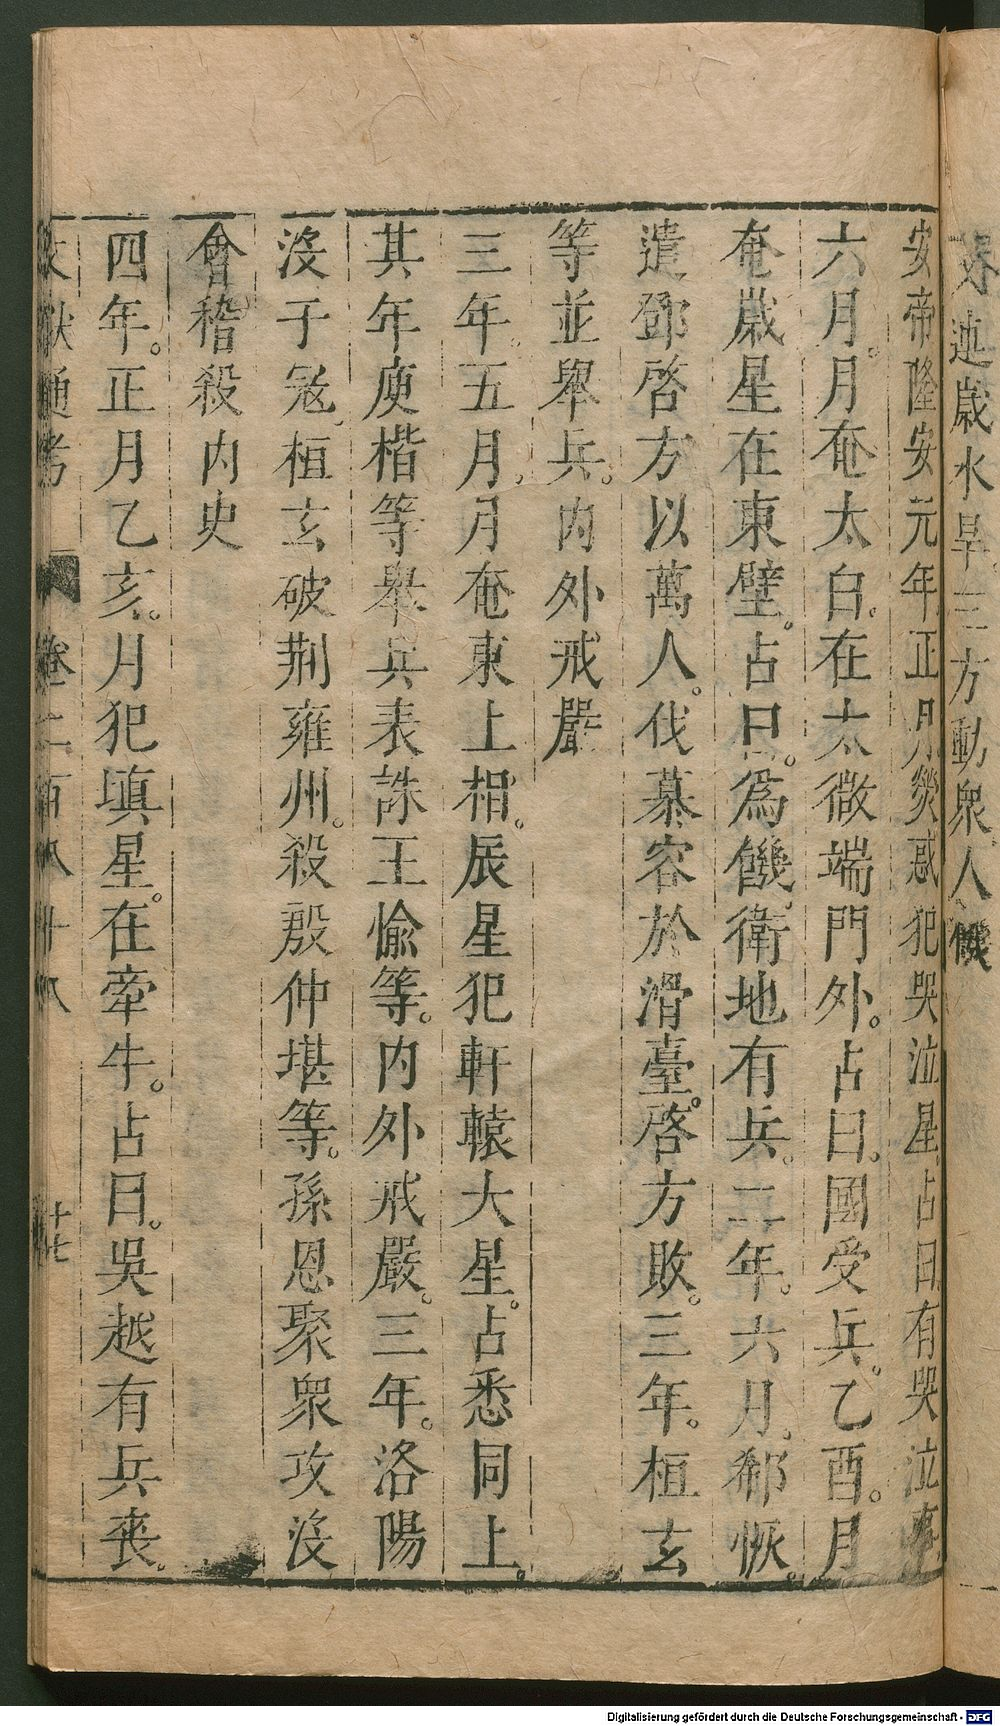 連歲水旱三方動衆人饑
安帝隆安元年正月熒惑犯哭泣星占曰有哭泣事
六月。月奄太白。在太微端門外。占曰。國受兵。乙酉。月
奄歲星在東壁。占曰。爲饑。衛地有兵。二年。六月。郗恢。
遣鄧啓方以萬人。伐慕容於滑臺。啓方敗。三年。桓玄
等並舉兵。內外戒嚴
三年。五月。月奄東上相。辰星犯軒轅大星。占悉同上。
其年庾楷等舉兵表誅王愉等。內外戒嚴。三年。洛陽
沒于寇。桓玄破荆雍州。殺殷仲堪等。孫恩聚衆攻沒
會稽殺內史
四年。正月乙亥。月犯塡星。在牽牛。占曰。吳越有兵喪。
文獻通考 卷二百八十八 十七
Digitalisierung gefördert durch die Deutsche Forschungsgemeinschaft - DFG